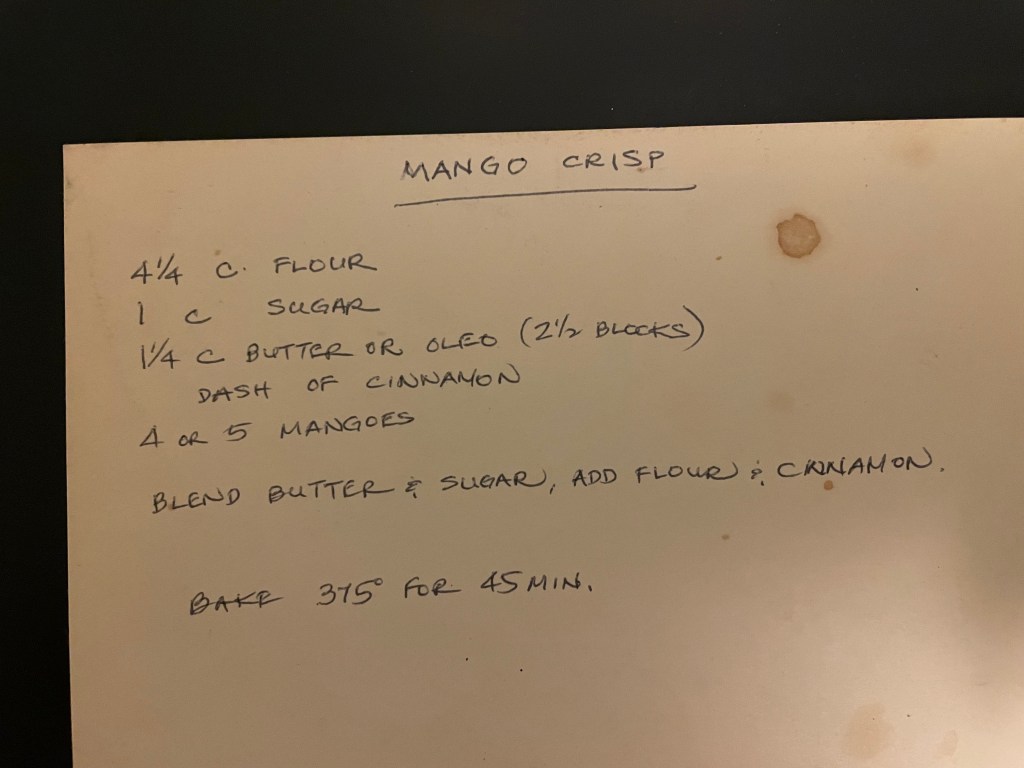 MANGO CRISP
4 1/4 C. FLOUR
1 C SUGAR
1 1/4 C BUTTER OR OLEO (2 1/2 BLOCKS)
DASH OF CINNAMON
4 OR 5 MANGOES
BLEND BUTTER & SUGAR, ADD FLOUR & CINNAMON.
BAKE 375° FOR 45 MIN.